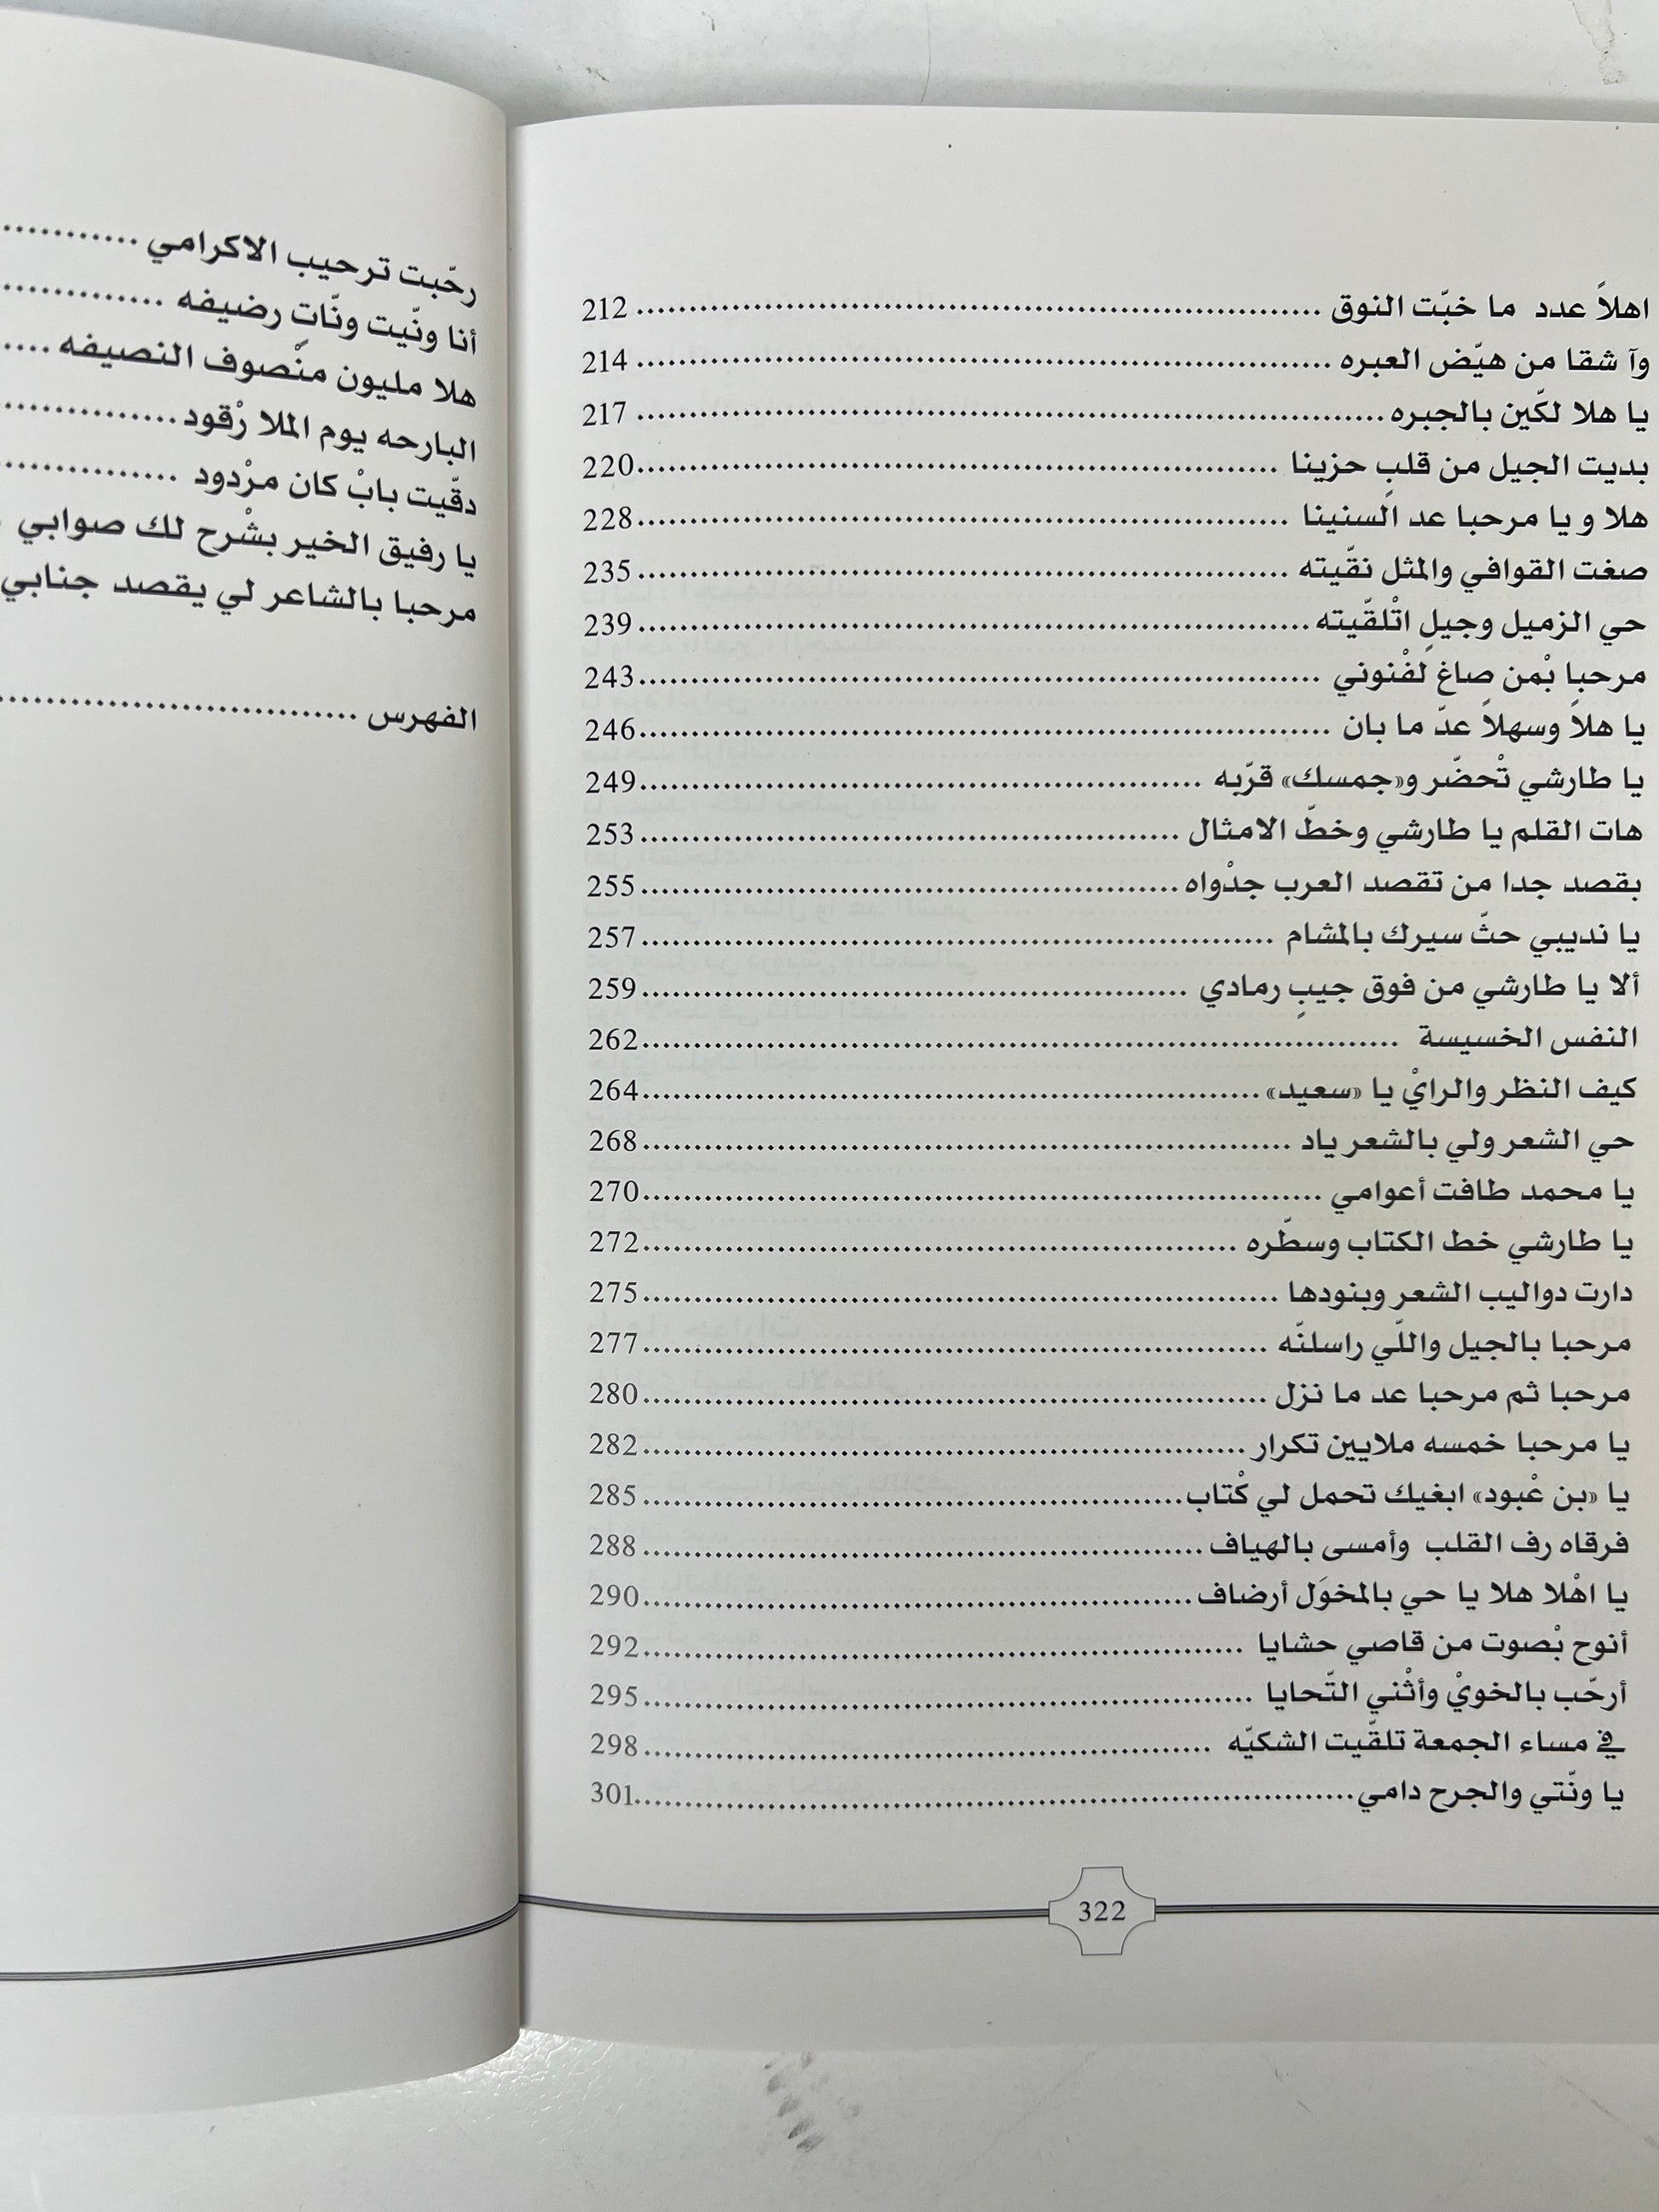 اهلاً عدد ما خبّت النوق ........ 212
وآ شقا من هيّض العبره ........ 214
يا هلا لكّين بالجبره ........ 217
بديت الجيل من قلبٍ حزينا ........ 220
هلا و يا مرحبا عد السنينا ........ 228
صغت القوافي والمثل نقّيته ........ 235
حي الزميل وجيلٍ اتْلقّيته ........ 239
مرحباٍ بْمن صاغ لفْنوني ........ 243
يا هلاً وسهلاً عدّ ما بان ........ 246
يا طارشي تْحضّر و«جمسك» قرّبه ........ 249
هات القلم يا طارشي وخطّ الامثال ........ 253
بقصد جدا من تقصد العرب جدْواه ........ 255
يا نديبي حثّ سيرك بالمشام ........ 257
ألا يا طارشي من فوق جيبٍ رمادي ........ 259
النفس الخسيسة ........ 262
كيف النظر والرايْ يا «سعيد» ........ 264
حي الشعر ولي بالشعر ياد ........ 268
يا محمد طافت أعوامي ........ 270
يا طارشي خط الكتاب وسطّره ........ 272
دارت دواليب الشعر وبنودها ........ 275
مرحبا بالجيل واللّي راسلنّه ........ 277
مرحبا ثم مرحبا عد ما نزل ........ 280
يا مرحبا خمسه ملايين تكرار ........ 282
يا «بن عْبود» ابغيك تحمل لي كْتاب ........ 285
فرقاه رف القلب وأمسى بالهياف ........ 288
يا اهْلا هلا يا حي بالمخوَل أرضاف ........ 290
أنوح بْصوت من قاصي حشايا ........ 292
أرحّب بالخويْ وأثْني التّحايا ........ 295
في مساء الجمعة تلقّيت الشكيّه ........ 298
يا ونّتي والجرح دامي ........ 301
322
رحّبت ترحيب الاكرامي ........
أنا ونّيت ونّاتٍ رضيفه ........
هلا مليون منْصوف النصيفه ........
البارحه يوم الملا رْقود ........
دقّيت بابْ كان مرْدود ........
يا رفيق الخير بشْرح لك صوابي
مرحبا بالشاعر لي يقصد جنابي
الفهرس ........